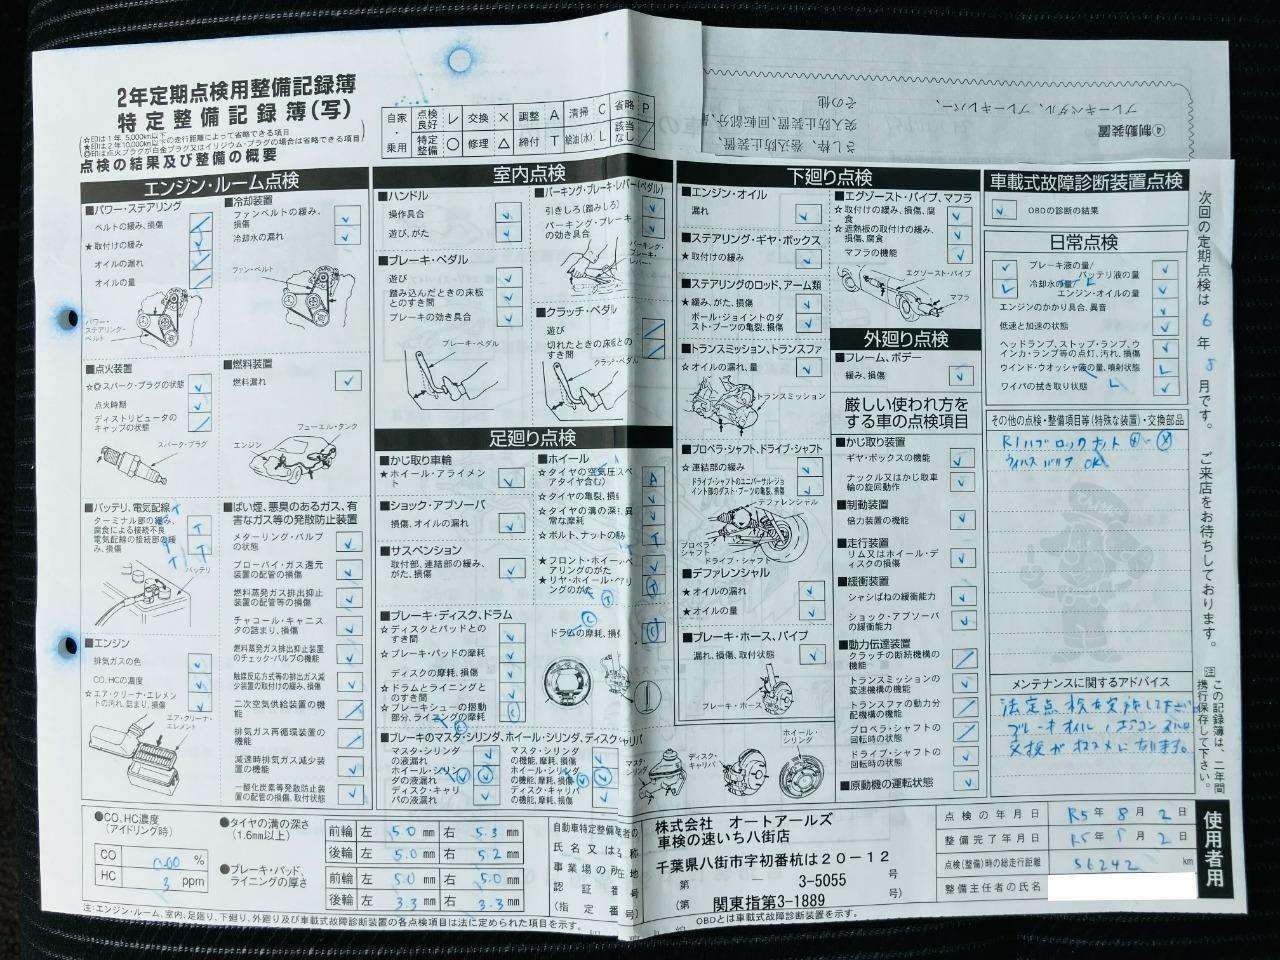 2年定期点検用整備記録簿
特定整備記録簿(写)
点検の結果及び整備の概要
自家・乗用
点検良好 レ 交換 × 調整 A 清掃 C 省略 P
特定整備 ○ 修理 △ 締付 T 給油(水) L 該当なし
エンジン・ルーム点検
■パワー・ステアリング
ベルトの緩み、損傷
★取付けの緩み
オイルの漏れ
オイルの量
パワー・ステアリング・ベルト
■冷却装置
ファンベルトの緩み、損傷
冷却水の漏れ
ファン・ベルト
■点火装置
☆◎スパーク・プラグの状態
点火時期
ディストリビュータのキャップの状態
スパーク・プラグ
■燃料装置
燃料漏れ
フューエル・タンク
エンジン
■バッテリ、電気配線
ターミナル部の緩み、腐食による接続不良
電気配線の接続部の緩み、損傷
バッテリ
■ばい煙、悪臭のあるガス、有害なガス等の発散防止装置
メターリング・バルブの状態
ブローバイ・ガス還元装置の配管の損傷
燃料蒸発ガス排出抑止装置の配管等の損傷
チャコール・キャニスタの詰まり、損傷
燃料蒸発ガス排出抑止装置のチェック・バルブの機能
触媒反応方式等の排出ガス減少装置の取付けの緩み、損傷
二次空気供給装置の機能
排気ガス再循環装置の機能
減速時排気ガス減少装置の機能
一酸化炭素等発散防止装置の配管の損傷、取付状態
■エンジン
排気ガスの色
CO、HCの濃度
☆エア・クリーナ・エレメントの汚れ、詰まり、損傷
エア・クリーナ・エレメント
室内点検
■ハンドル
操作具合
遊び、がた
■ブレーキ・ペダル
遊び
踏み込んだときの床板とのすき間
ブレーキの効き具合
ブレーキ・ペダル
■パーキング・ブレーキ・レバー(ペダル)
引きしろ(踏みしろ)
パーキング・ブレーキの効き具合
パーキング・ブレーキ・レバー
■クラッチ・ペダル
遊び
切れたときの床板とのすき間
クラッチ・ペダル
足廻り点検
■かじ取り車輪
★ホイール・アライメント
■ショック・アブソーバ
損傷、オイルの漏れ
■サスペンション
取付部、連結部の緩み、がた、損傷
■ブレーキ・ディスク、ドラム
☆ディスクとパッドとのすき間
☆ブレーキ・パッドの摩耗
ディスクの摩耗、損傷
☆ドラムとライニングとのすき間
☆ブレーキシューの摺動部分、ライニングの摩耗
ドラムの摩耗、損傷
■ホイール
☆タイヤの空気圧
☆タイヤの亀裂、損傷
☆タイヤの溝の深さ、異常な摩耗
☆ボルト、ナットの緩み
★フロント・ホイール・ベアリングのがた
★リヤ・ホイール・ベアリングのがた
■ブレーキのマスタ・シリンダ、ホイール・シリンダ、ディスク・キャリパ
マスタ・シリンダの液漏れ
ホイール・シリンダの液漏れ
ディスク・キャリパの液漏れ
マスタ・シリンダの機能、摩耗、損傷
ホイール・シリンダの機能、摩耗、損傷
ディスク・キャリパの機能、摩耗、損傷
マスタ・シリンダ
ディスク・キャリパ
ホイール・シリンダ
下廻り点検
■エンジン・オイル
漏れ
■ステアリング・ギヤ・ボックス
★取付けの緩み
■ステアリングのロッド、アーム類
★緩み、がた、損傷
ボール・ジョイントのダスト・ブーツの亀裂、損傷
■トランスミッション、トランスファ
☆オイルの漏れ、量
トランスミッション
■プロペラ・シャフト、ドライブ・シャフト
☆連結部の緩み
ドライブ・シャフトのユニバーサル・ジョイント部のダスト・ブーツの亀裂、損傷
デファレンシャル
プロペラ・シャフト
ドライブ・シャフト
■デファレンシャル
★オイルの漏れ
★オイルの量
■ブレーキ・ホース、パイプ
漏れ、損傷、取付状態
ブレーキ・ホース
■エグゾースト・パイプ、マフラ
☆取付けの緩み、損傷、腐食
☆遮熱板の取付けの緩み、損傷、腐食
マフラの機能
エグゾースト・パイプ
マフラ
外廻り点検
■フレーム、ボデー
緩み、損傷
厳しい使われ方をする車の点検項目
■かじ取り装置
ギヤ・ボックスの機能
ナックル又はかじ取車輪の旋回動作
■制動装置
倍力装置の機能
■走行装置
リム又はホイール・ディスクの損傷
■緩衝装置
シャシばねの緩衝能力
ショック・アブソーバの緩衝能力
■動力伝達装置
クラッチの断続機構の機能
トランスミッションの変速機構の機能
トランスファの動力分配機構の機能
プロペラ・シャフトの回転時の状態
ドライブ・シャフトの回転時の状態
■原動機の運転状態
車載式故障診断装置点検
OBDの診断の結果
日常点検
ブレーキ液の量
バッテリ液の量
冷却水の量
エンジン・オイルの量
エンジンのかかり具合、異音
低速と加速の状態
ヘッドランプ、ストップ・ランプ、ウインカ・ランプ等の点灯、汚れ、損傷
ウインド・ウオッシャ液の量、噴射状態
ワイパの拭き取り状態
その他の点検・整備項目等(特殊な装置)・交換部品
ウィルスバリア OK
メンテナンスに関するアドバイス
法定点検を実施して下さい
ブレーキオイル、エアコンフィルター
交換がオススメになります。
次回の定期点検は 6 年 8 月です。 ご来店をお待ちしております。
注 この記録簿は、二年間携行保存して下さい。
使用者用
●CO、HC濃度(アイドリング時)
CO 0.00 %
HC 3 ppm
●タイヤの溝の深さ(1.6mm以上)
前輪 左 5.0 mm 右 5.3 mm
後輪 左 5.0 mm 右 5.2 mm
●ブレーキ・パッド、ライニングの厚さ
前輪 左 5.0 mm 右 5.0 mm
後輪 左 3.3 mm 右 3.3 mm
株式会社 オートアールズ
車検の速いち八街店
千葉県八街市字初番杭は20-12
第 - 3-5055 号
(第 関東指第3-1889 号)
点検の年月日 R5年 8月 2日
整備完了年月日 R5年 8月 2日
点検(整備)時の総走行距離 56242 km
整備主任者の氏名
注:エンジン・ルーム、室内、足廻り、下廻り、外廻り及び車載式故障診断装置の各点検項目は法に定められた項目を示す。
OBDとは車載式故障診断装置を示す。
④制動装置
ブレーキペダル、ブレーキレバー、
その他
突入防止装置、回転部分、
さし枠、巻込防止装置、